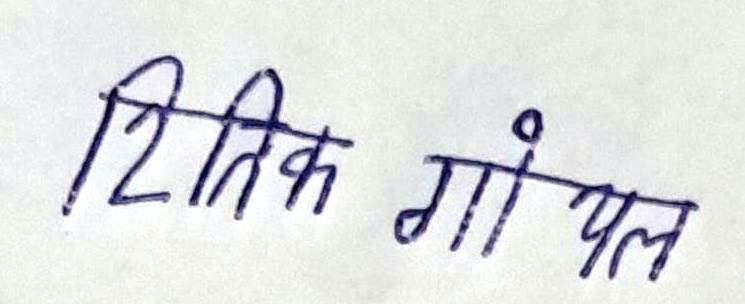 रितिक गांयल